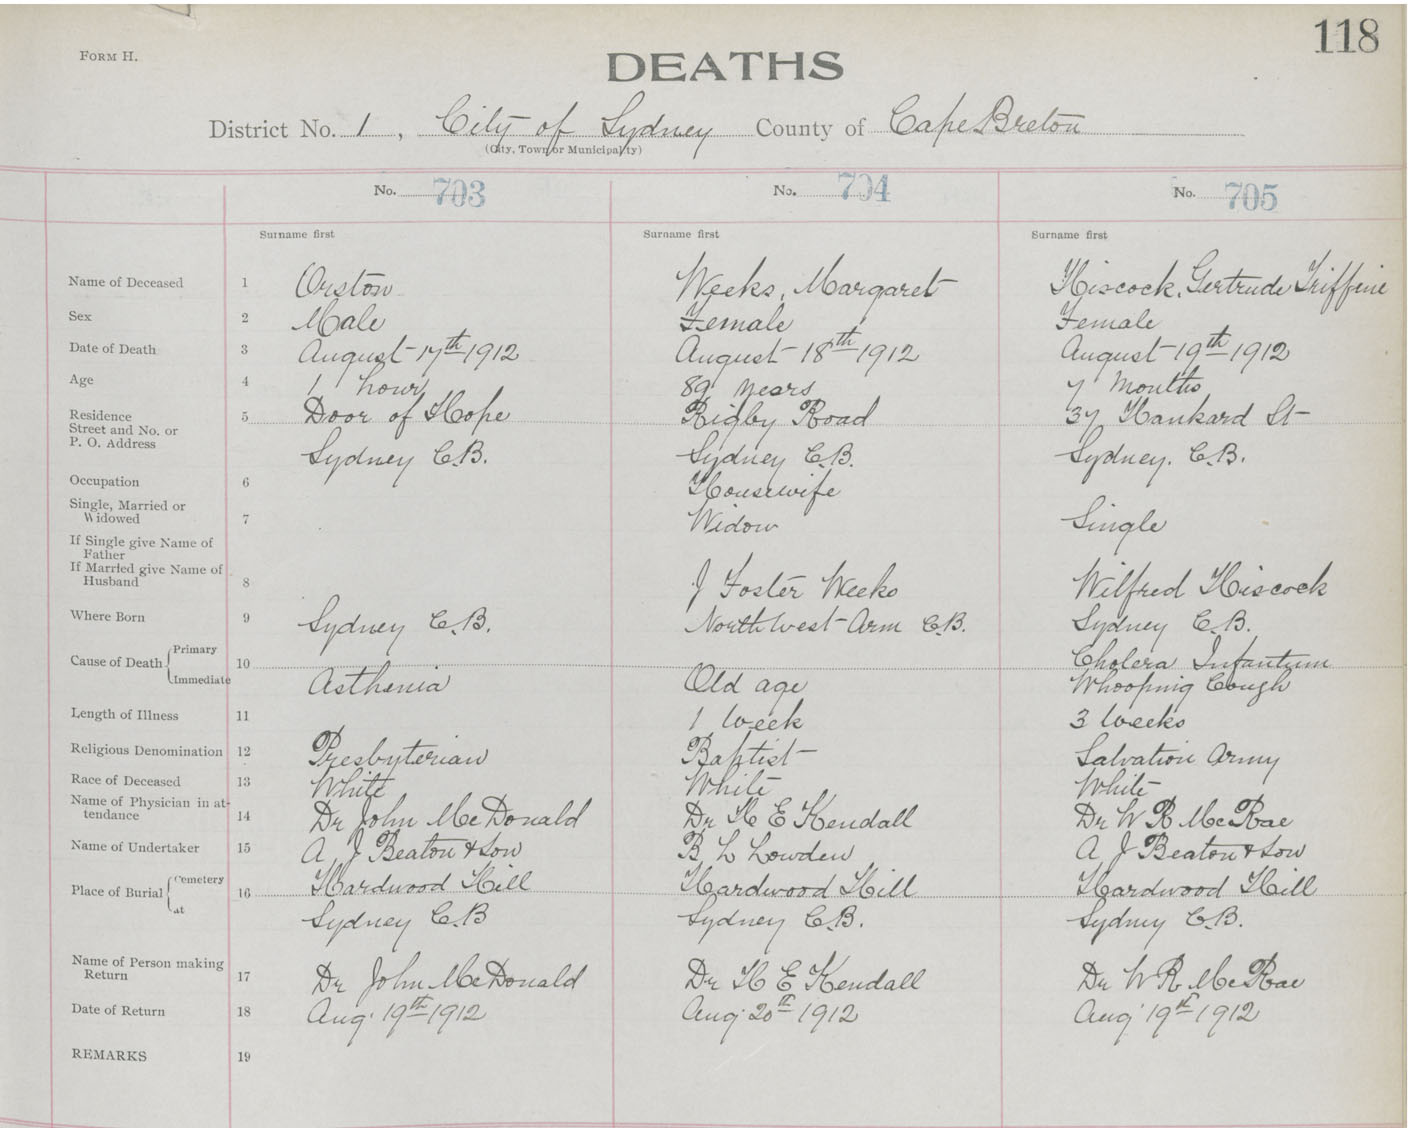 118
FORM H.
DEATHS
District No. 1, City of Sydney County of Cape Breton
(City, Town or Municipality)
No. 703 No. 704 No. 705
Surname first Surname first Surname first
Name of Deceased 1 Orston Weeks, Margaret Hiscock, Gertrude Triffine
Sex 2 Male Female Female
Date of Death 3 August 17th 1912 August 18th 1912 August 19th 1912
Age 4 1 hour 89 years 7 months
Residence 5 Door of Hope Rigby Road 37 Hankard St
Street and No. or
P. O. Address Sydney C.B. Sydney C.B. Sydney. C.B.
Occupation 6 Housewife
Single, Married or
Widowed 7 Widow Single
If Single give Name of
Father
If Married give Name of
Husband 8 J Foster Weeks Wilfred Hiscock
Where Born 9 Sydney C.B. North West Arm C.B. Sydney C.B.
Cause of Death Primary 10 Cholera Infantum
Immediate Asthenia Old age Whooping Cough
Length of Illness 11 1 week 3 weeks
Religious Denomination 12 Presbyterian Baptist Salvation Army
Race of Deceased 13 White White White
Name of Physician in at-
tendance 14 Dr John McDonald Dr H E Kendall Dr W R McRae
Name of Undertaker 15 A J Beaton & Son B L Lowden A J Beaton & Son
Place of Burial Cemetery 16 Hardwood Hill Hardwood Hill Hardwood Hill
at Sydney C.B Sydney C.B. Sydney C.B.
Name of Person making
Return 17 Dr John McDonald Dr H E Kendall Dr W R McRae
Date of Return 18 Aug. 19th 1912 Aug. 20th 1912 Aug. 19th 1912
REMARKS 19